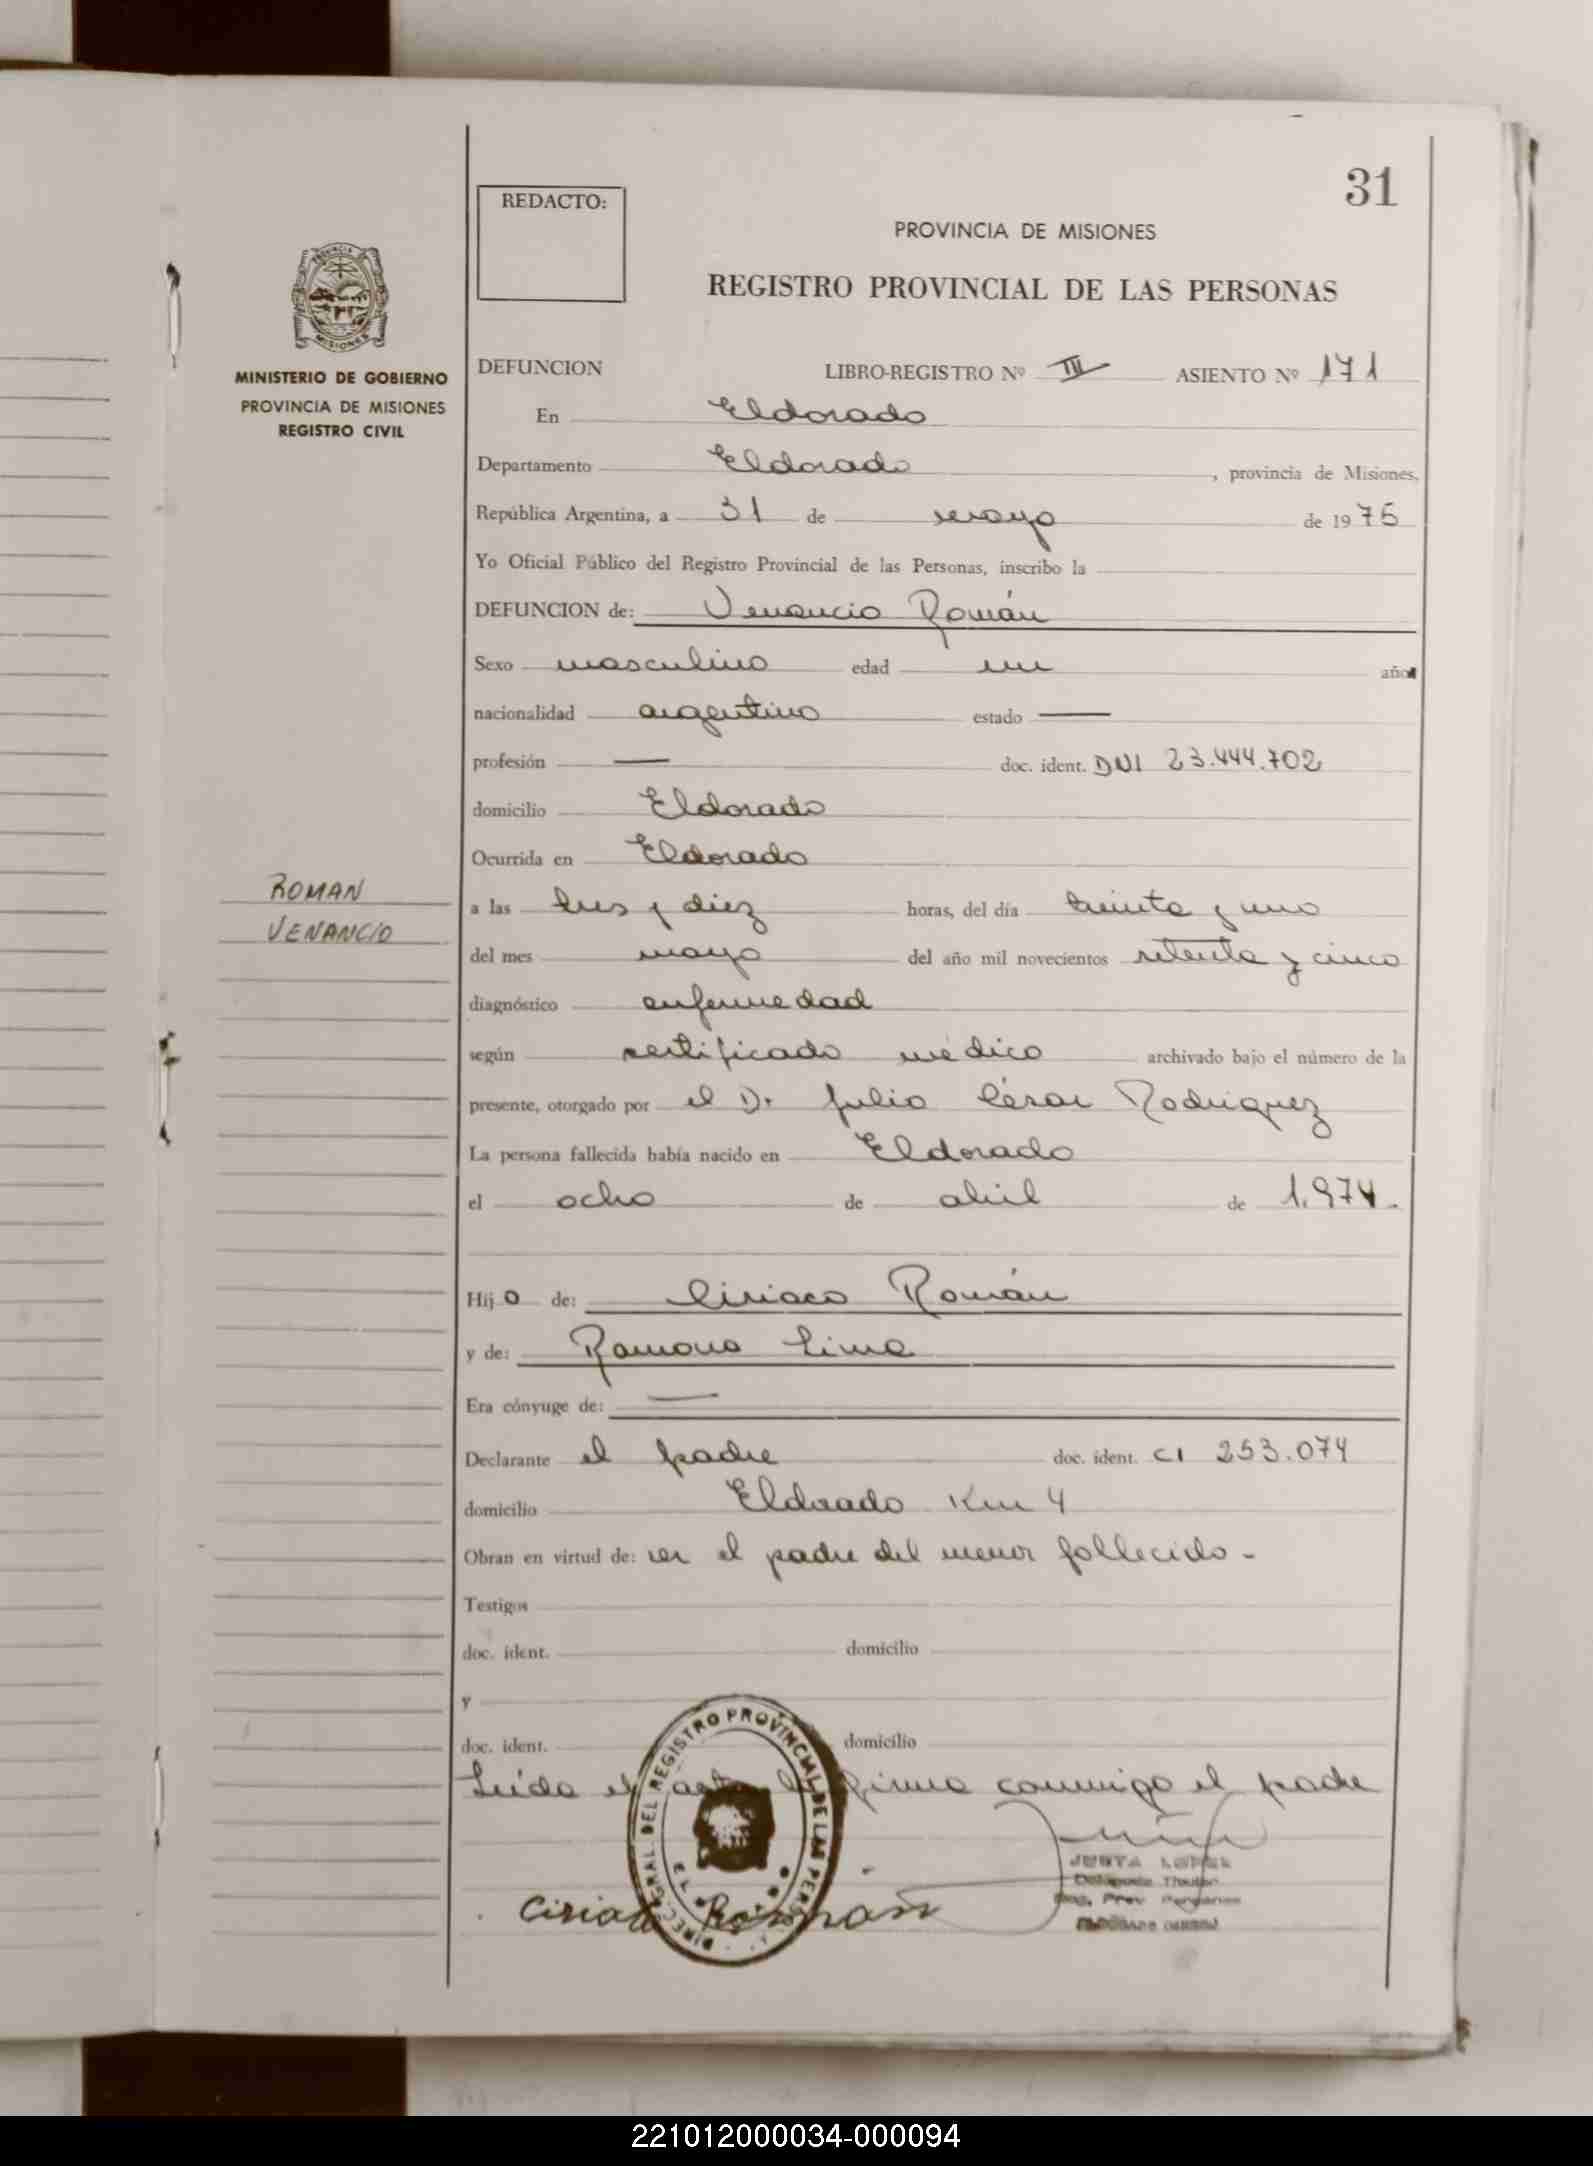 31
REDACTO:
PROVINCIA DE MISIONES
REGISTRO PROVINCIAL DE LAS PERSONAS
PROVINCIA
MISIONES
MINISTERIO DE GOBIERNO
PROVINCIA DE MISIONES
REGISTRO CIVIL
DEFUNCION LIBRO-REGISTRO Nº III ASIENTO Nº 171
En Eldorado
Departamento Eldorado, provincia de Misiones,
República Argentina, a 31 de mayo de 1975
Yo Oficial Público del Registro Provincial de las Personas, inscribo la
DEFUNCION de: Venancio Román
Sexo masculino edad un año
nacionalidad argentino estado —
profesión — doc. ident. DNI 23.444.702
domicilio Eldorado
Ocurrida en Eldorado
ROMAN
VENANCIO
a las tres y diez horas, del día treinta y uno
del mes mayo del año mil novecientos setenta y cinco
diagnóstico enfermedad
según certificado médico archivado bajo el número de la
presente, otorgado por el Dr Julio César Rodriguez
La persona fallecida había nacido en Eldorado
el ocho de abril de 1.974.
Hijo de: Ciriaco Román
y de: Ramona Lima
Era cónyuge de: —
Declarante el padre doc. ident. CI 253.074
domicilio Eldorado Km 4
Obran en virtud de: ser el padre del menor fallecido -
Testigos
doc. ident. domicilio
y
doc. ident. domicilio
Leída el acta la firma conmigo el padre
DIREC. GRAL. DEL REGISTRO PROVINCIAL DE LAS PERSONAS
JUSTA LOPEZ
Delegada Titular
Reg. Prov. Personas
Ciriaco Román
221012000034-000094